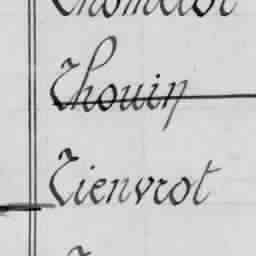 Thouin
Tienvrot